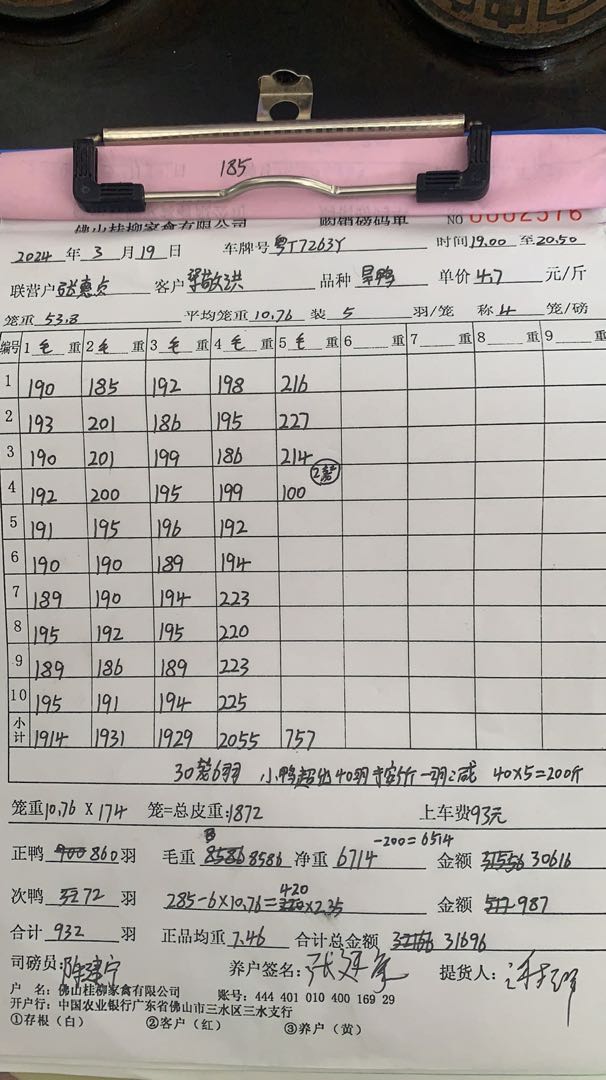 185
佛山桂柳家禽有限公司 购销磅码单 NO 0002576
2024 年 3 月 19 日 车牌号 粤T7263Y 时间 19.00 至 20.50
联营户 客户 品种 旱鸭 单价 4.7 元/斤
笼重 53.8 平均笼重 10.76 装 5 羽/笼 称 4 笼/磅
编号 1 毛 重 2 毛 重 3 毛 重 4 毛 重 5 毛 重 6 重 7 重 8 重 9 重
1 190 185 192 198 216
2 193 201 186 195 227
3 190 201 199 186 214
4 192 200 195 199 100 2笼
5 191 195 196 192
6 190 190 189 194
7 189 190 194 223
8 195 192 195 220
9 189 186 189 223
10 195 191 194 225
小计 1914 1931 1929 2055 757
30笼6羽 小鸭超出40羽 斤一羽 减 40×5=200斤
笼重 10.76 × 174 笼=总皮重: 1872 上车费 93元
正鸭 900 860 羽 毛重 8586 8586 净重 6714 -200=6514 金额 30616
次鸭 72 羽 285-6×10.76= 420 ×2.35 金额 987
合计 932 羽 正品均重 7.46 合计总金额 31696
司磅员: 养户签名: 提货人:
户 名: 佛山桂柳家禽有限公司 账号: 444 401 010 400 169 29
开户行: 中国农业银行广东省佛山市三水区三水支行
①存根（白） ②客户（红） ③养户（黄）